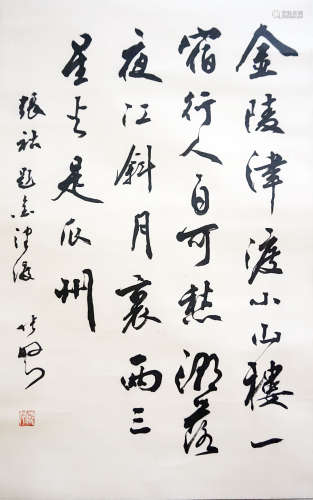 金陵津渡小山樓一
宿行人自可愁潮落
夜江斜月裏兩三
星火是瓜州
張祜題金陵渡